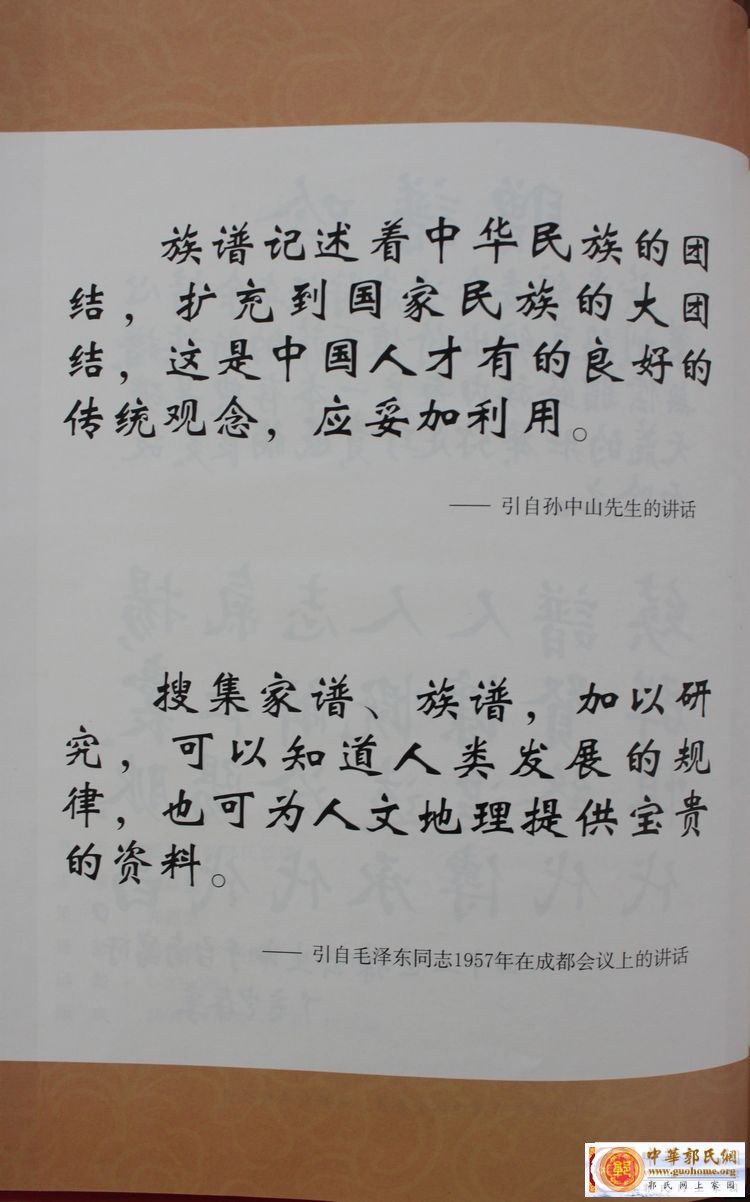 族谱记述着中华民族的团
结，扩充到国家民族的大团
结，这是中国人才有的良好的
传统观念，应妥加利用。
—— 引自孙中山先生的讲话
搜集家谱、族谱，加以研
究，可以知道人类发展的规
律，也可为人文地理提供宝贵
的资料。
—— 引自毛泽东同志1957年在成都会议上的讲话
中華郭氏網
www.guohome.org
郭氏网上家园